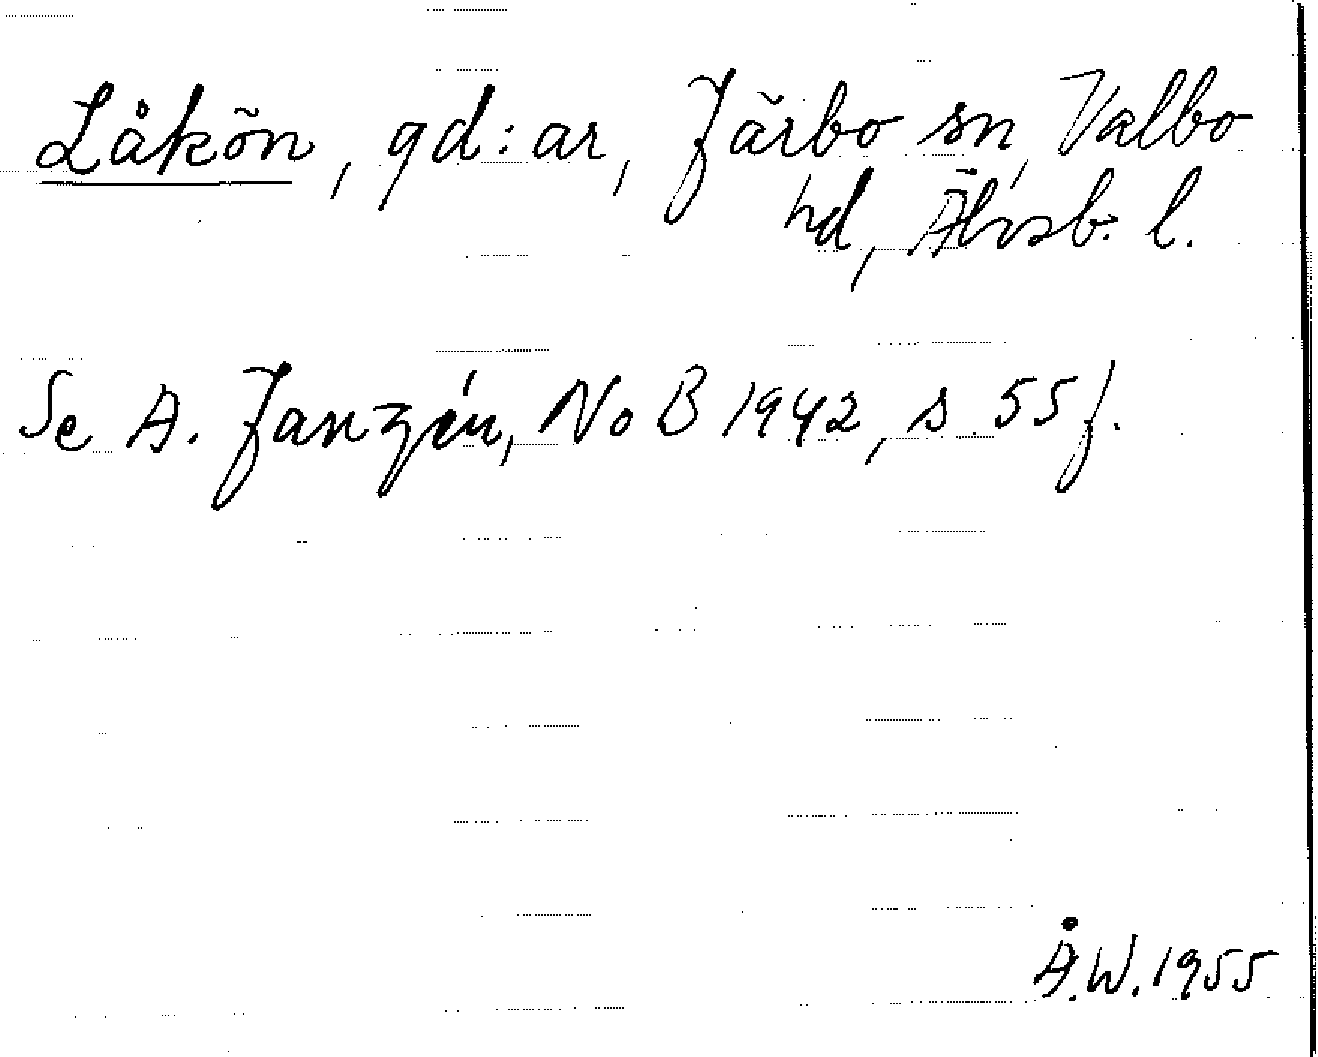 Låkön, gd:ar, Järbo sn, Valbo
hd, Älvsb. l.
Se A. Janzén, NoB 1942, s. 55 f.
Å.W. 1955